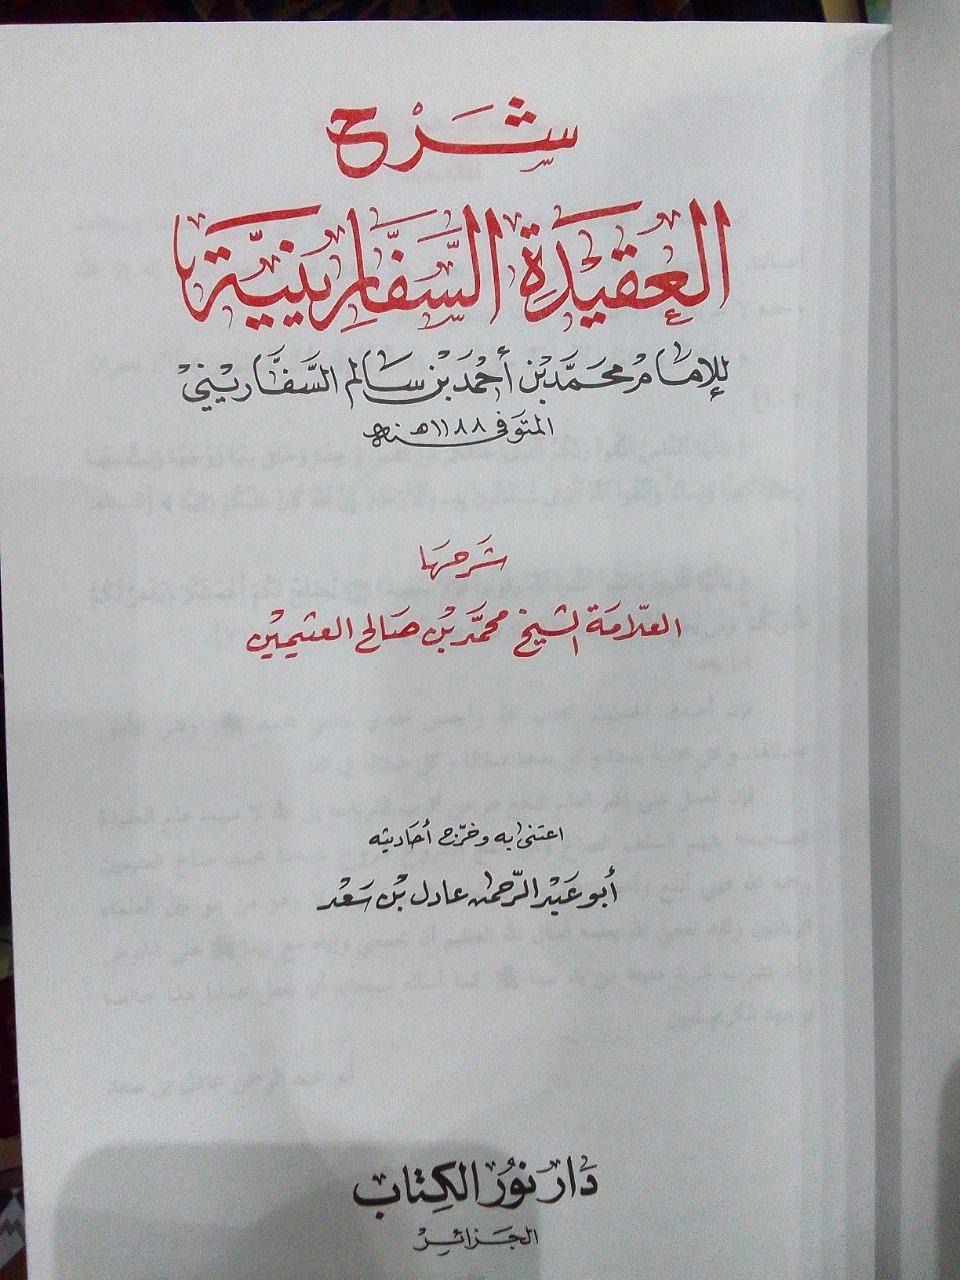 شرح
العقيدة السفارينية
للإمام محمد بن أحمد بن سالم السفاريني
المتوفى سنة ١١٨٨ هـ
شرحها
العلامة الشيخ محمد بن صالح العثيمين
اعتنى به وخرج أحاديثه
أبو عبد الرحمن عادل بن سعد
دار نور الكتاب
الجزائر